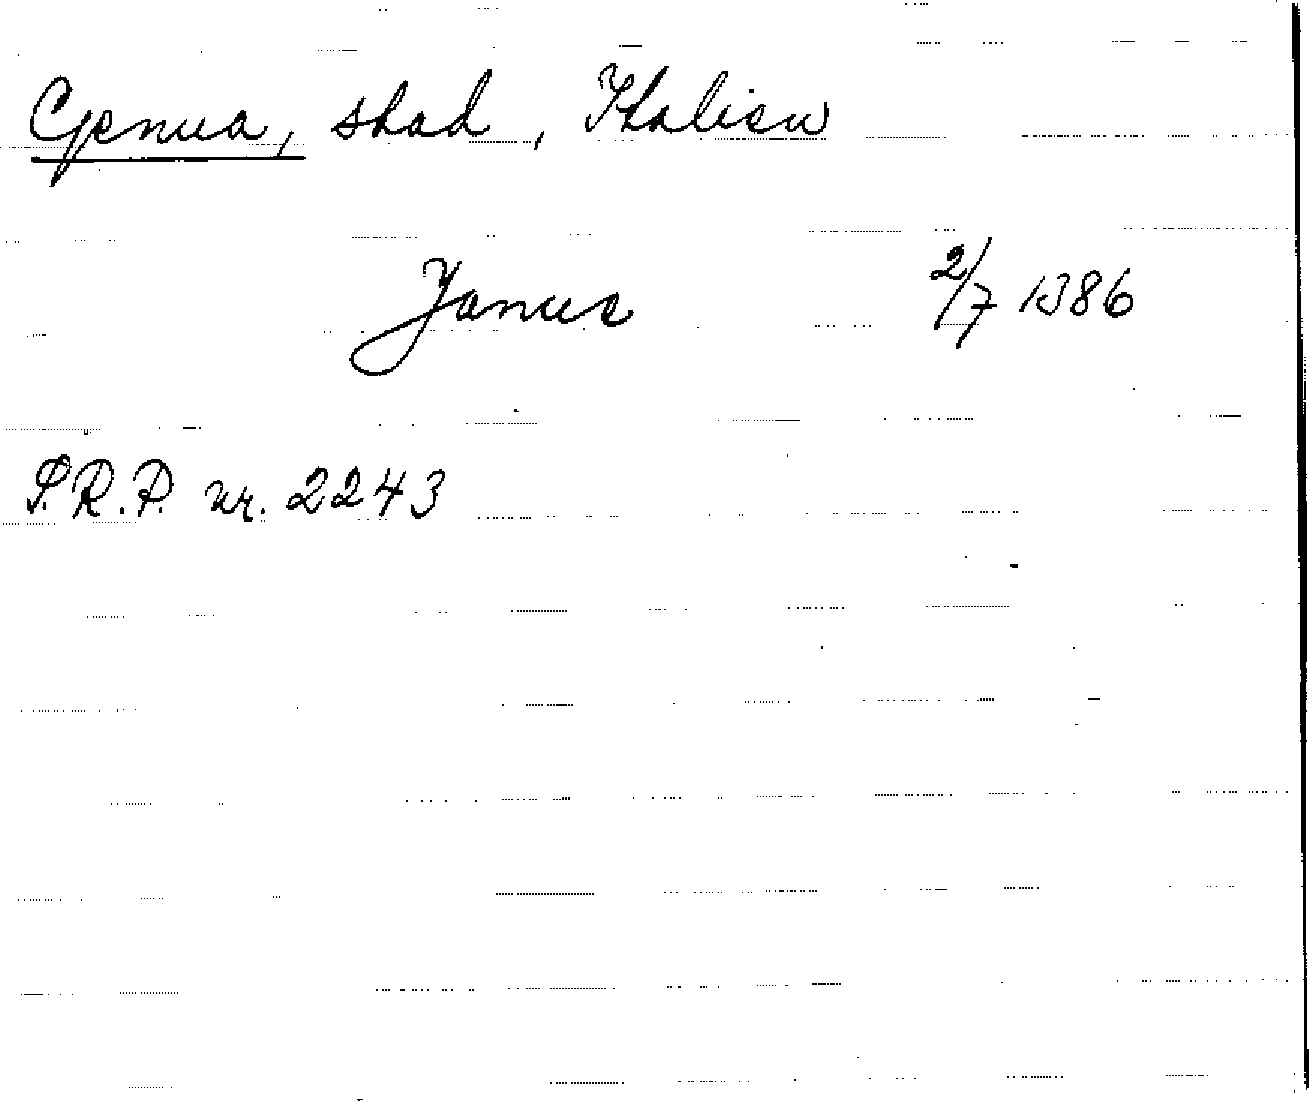 Genua, stad, Italien
Janue 2/7 1386
S.R.P. nr. 2243